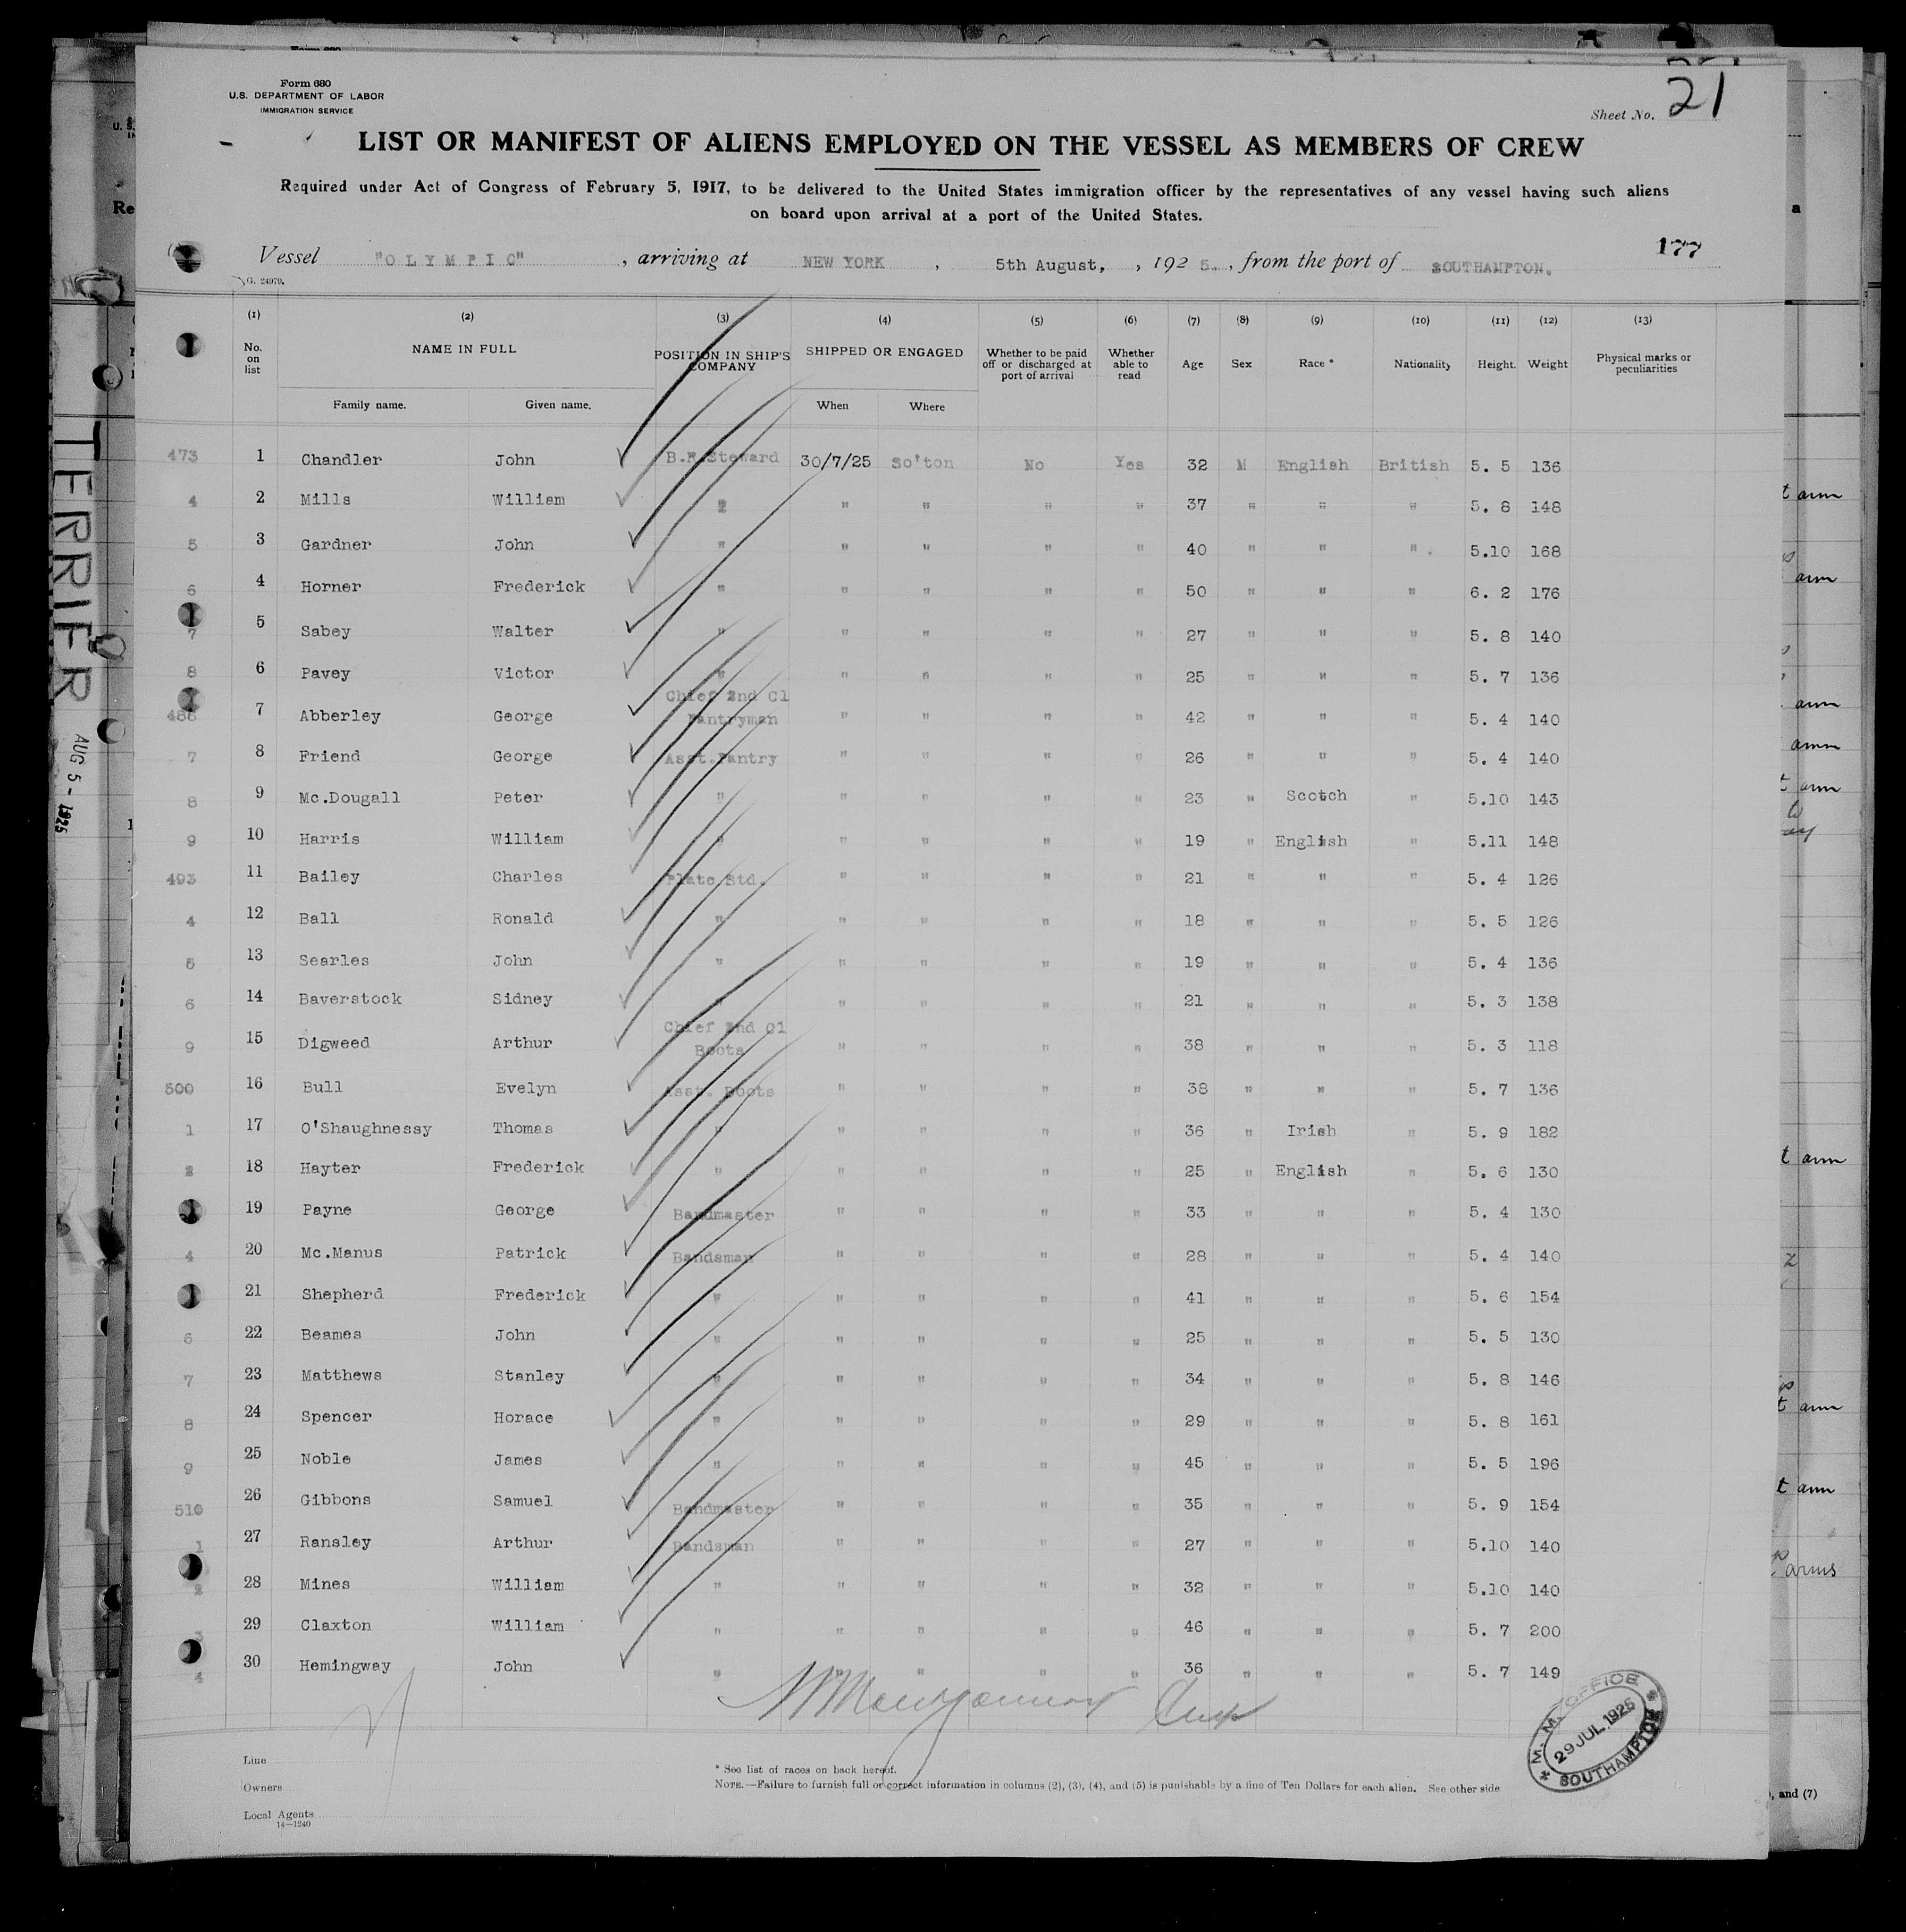 Form 680
U.S. DEPARTMENT OF LABOR
IMMIGRATION SERVICE
Sheet No. 21
LIST OR MANIFEST OF ALIENS EMPLOYED ON THE VESSEL AS MEMBERS OF CREW
Required under Act of Congress of February 5, 1917, to be delivered to the United States immigration officer by the representatives of any vessel having such aliens
on board upon arrival at a port of the United States.
177
Vessel "OLYMPIC", arriving at NEW YORK, 5th August, , 192 5., from the port of SOUTHAMPTON.
G. 24979.
(1) (2) (3) (4) (5) (6) (7) (8) (9) (10) (11) (12) (13)
No. on list NAME IN FULL POSITION IN SHIP'S COMPANY SHIPPED OR ENGAGED Whether to be paid off or discharged at port of arrival Whether able to read Age Sex Race * Nationality Height. Weight Physical marks or peculiarities
Family name. Given name. When Where
473 1 Chandler John B.R.Steward 30/7/25 So'ton No Yes 32 M English British 5. 5 136
4 2 Mills William " " " " " 37 " " " 5. 8 148
5 3 Gardner John " " " " " 40 " " " 5.10 168
6 4 Horner Frederick " " " " " 50 " " " 6. 2 176
7 5 Sabey Walter " " " " " 27 " " " 5. 8 140
8 6 Pavey Victor " " " " " 25 " " " 5. 7 136
486 7 Abberley George Chief 2nd Cl Pantryman " " " " 42 " " " 5. 4 140
7 8 Friend George Asst.Pantry " " " " 26 " " " 5. 4 140
8 9 Mc.Dougall Peter " " " " " 23 " Scotch " 5.10 143
9 10 Harris William " " " " " 19 " English " 5.11 148
493 11 Bailey Charles Plate Std. " " " " 21 " " " 5. 4 126
4 12 Ball Ronald " " " " " 18 " " " 5. 5 126
5 13 Searles John " " " " " 19 " " " 5. 4 136
6 14 Baverstock Sidney " " " " " 21 " " " 5. 3 138
9 15 Digweed Arthur Chief 2nd Cl Boots " " " " 38 " " " 5. 3 118
500 16 Bull Evelyn Asst. Boots " " " " 38 " " " 5. 7 136
1 17 O'Shaughnessy Thomas " " " " " 36 " Irish " 5. 9 182
2 18 Hayter Frederick " " " " " 25 " English " 5. 6 130
19 Payne George Bandmaster " " " " 33 " " " 5. 4 130
4 20 Mc.Manus Patrick Bandsman " " " " 28 " " " 5. 4 140
21 Shepherd Frederick " " " " " 41 " " " 5. 6 154
6 22 Beames John " " " " " 25 " " " 5. 5 130
7 23 Matthews Stanley " " " " " 34 " " " 5. 8 146
8 24 Spencer Horace " " " " " 29 " " " 5. 8 161
9 25 Noble James " " " " " 45 " " " 5. 5 196
510 26 Gibbons Samuel Bandmaster " " " " 35 " " " 5. 9 154
1 27 Ransley Arthur Bandsman " " " " 27 " " " 5.10 140
2 28 Mines William " " " " " 32 " " " 5.10 140
3 29 Claxton William " " " " " 46 " " " 5. 7 200
4 30 Hemingway John " " " " " 36 " " " 5. 7 149
M.M. OFFICE
29 JUL.1925
SOUTHAMPTON
Line
Owners
Local Agents
14—1240
* See list of races on back hereof.
NOTE.—Failure to furnish full or correct information in columns (2), (3), (4), and (5) is punishable by a fine of Ten Dollars for each alien. See other side
TERRIER
AUG 5 - 1925
t arm
arm
arm
arm
t arm
t arm
t arm
t arm
arms
, and (7)